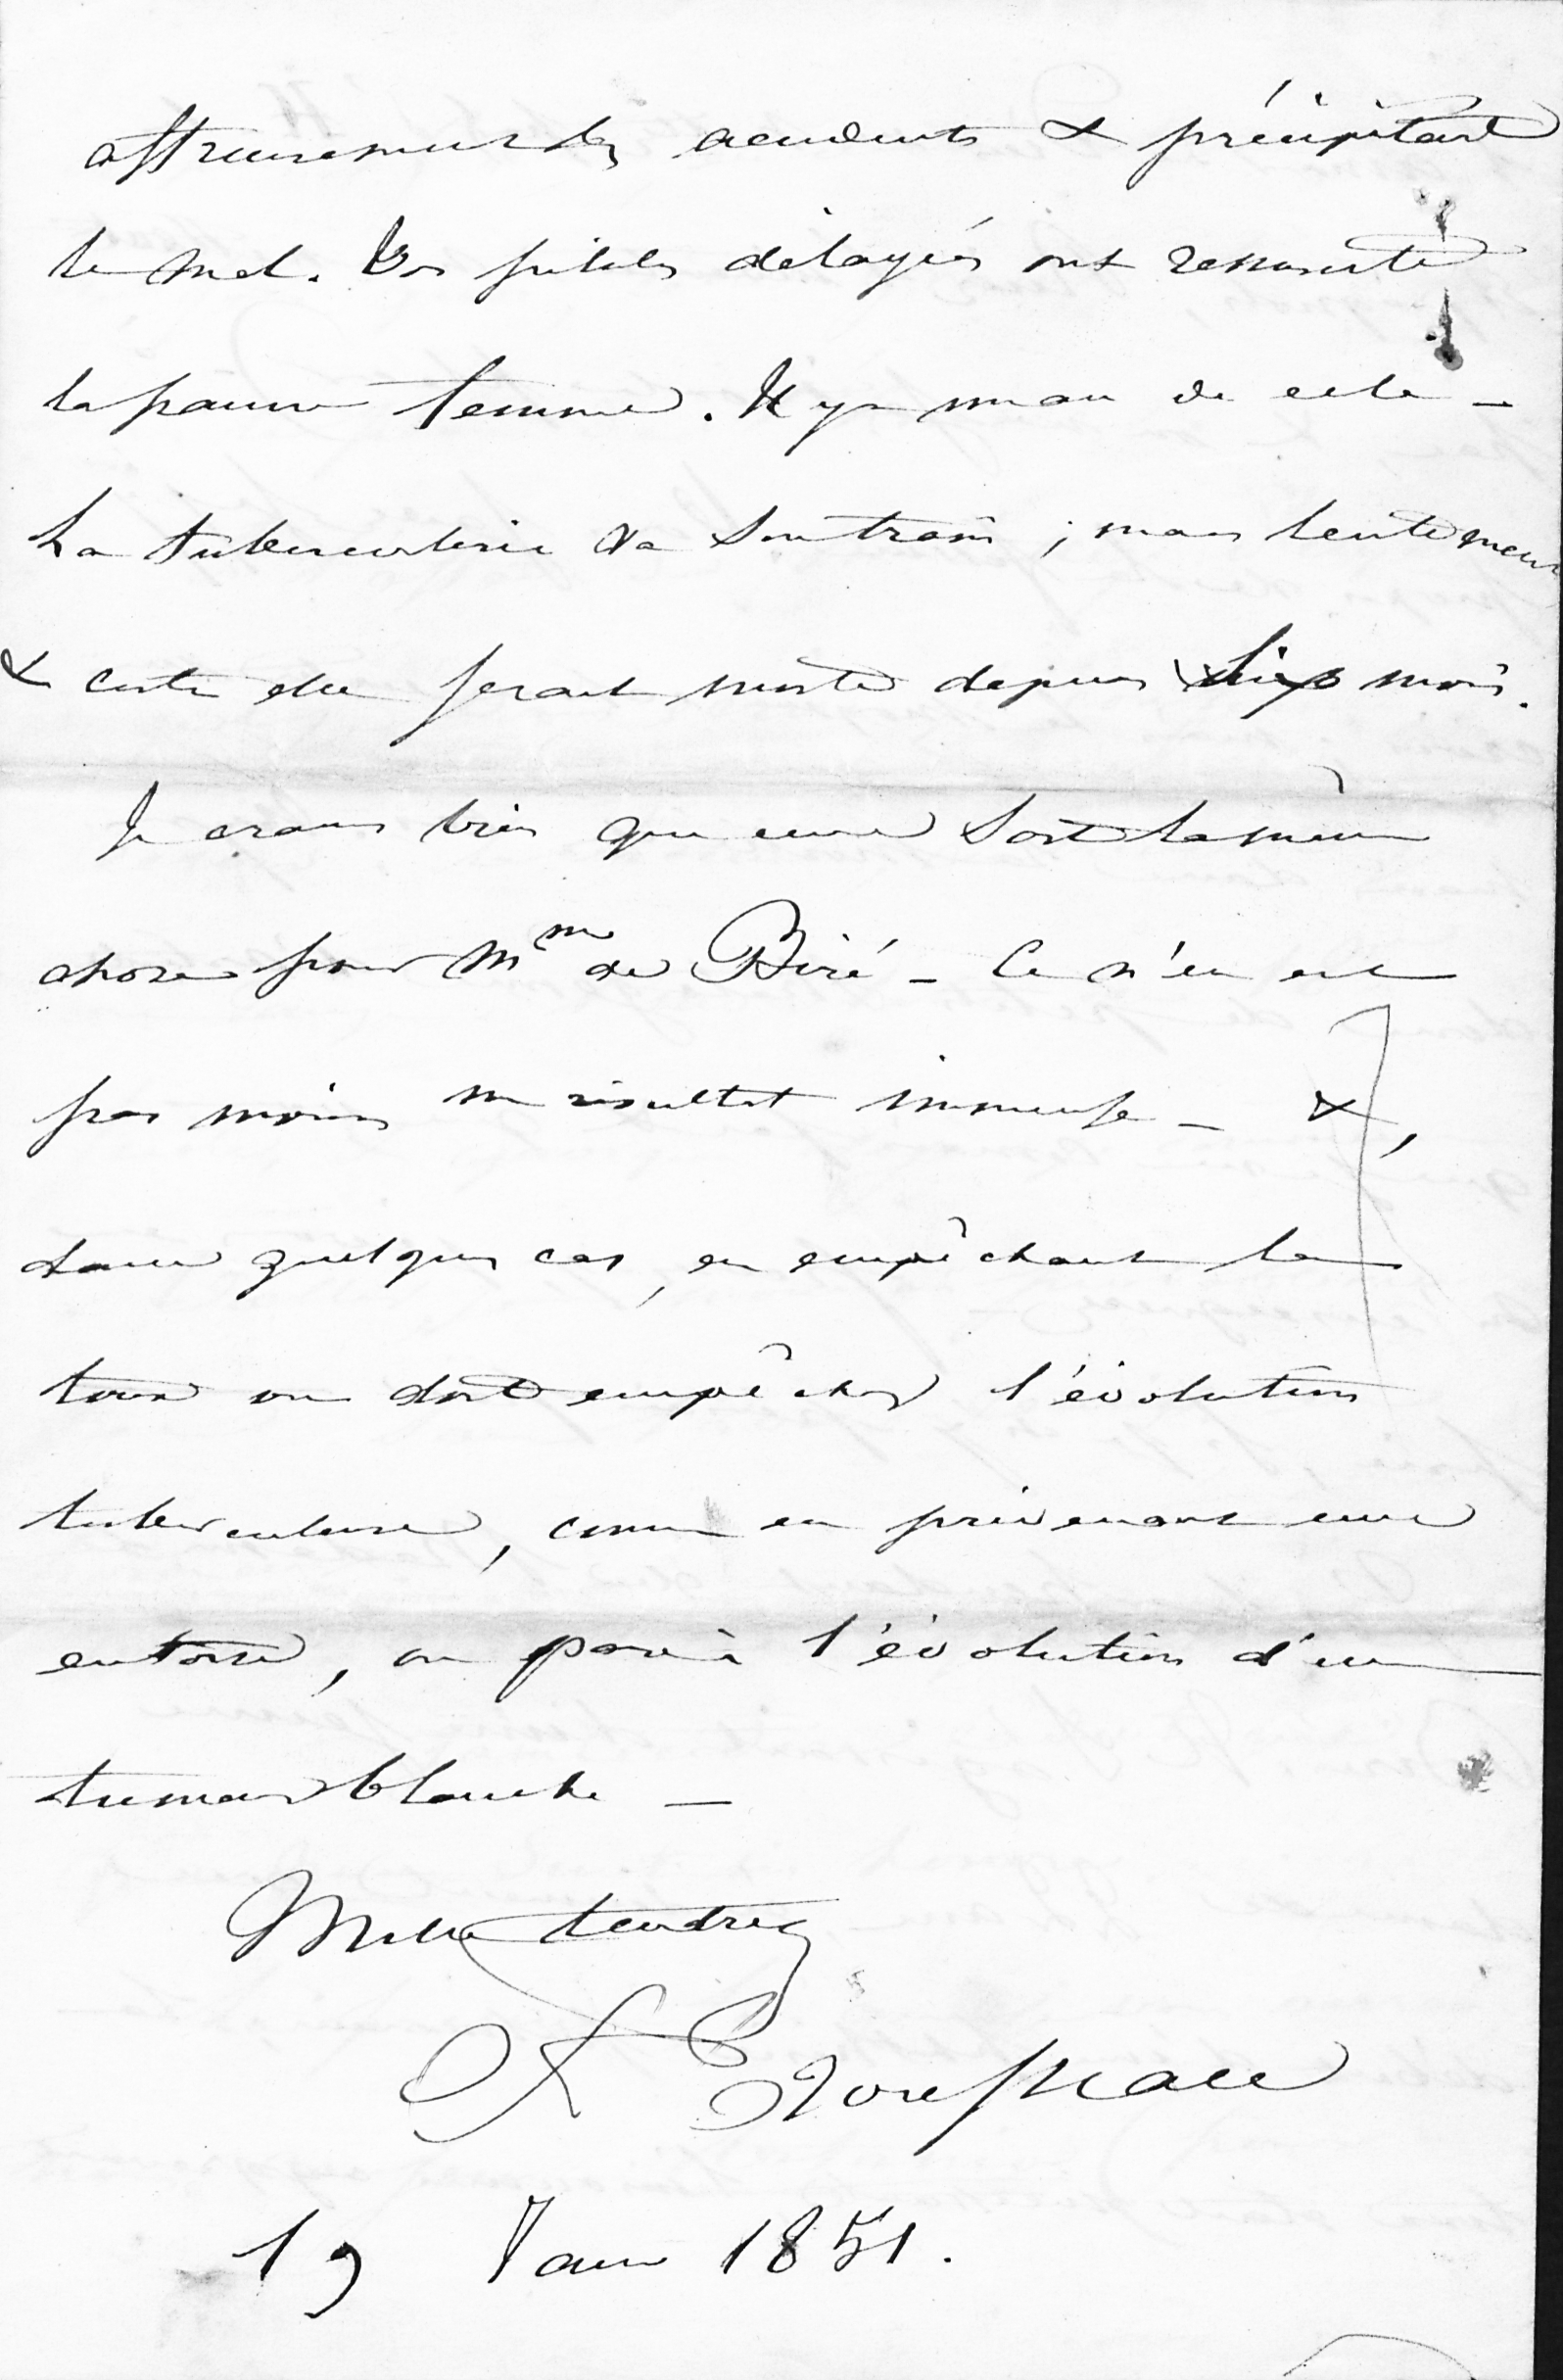 affreusement les accidents & précipitant
le mal. Vos pilules délayées ont ressuscité
la pauvre femme. Il y a un an de cela –
La tuberculisie va son train ; mais lentement
& certe elle serait morte depuis six mois.
Je crains bien que ce ne soit la même
chose pour Mme de Biré – Ce n'en est
pas moins un résultat immense – &,
dans quelques cas, en empêchant la
toux on doit empêcher l'évolution
tuberculeuse, comme en prévenant une
entorse, on pare à l'évolution d'une
tumeur blanche –
Mille tendresses
A Trousseau
19 Janv 1851.